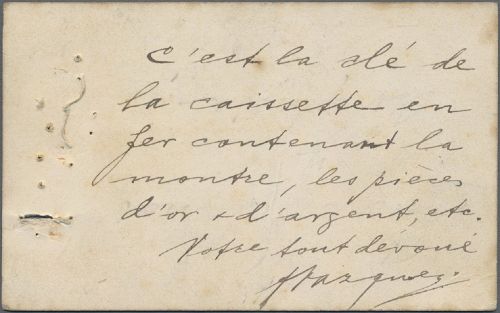 C'est la clé de
la caissette en
fer contenant la
montre, les pièces
d'or & d'argent, etc.
Votre tout dévoué